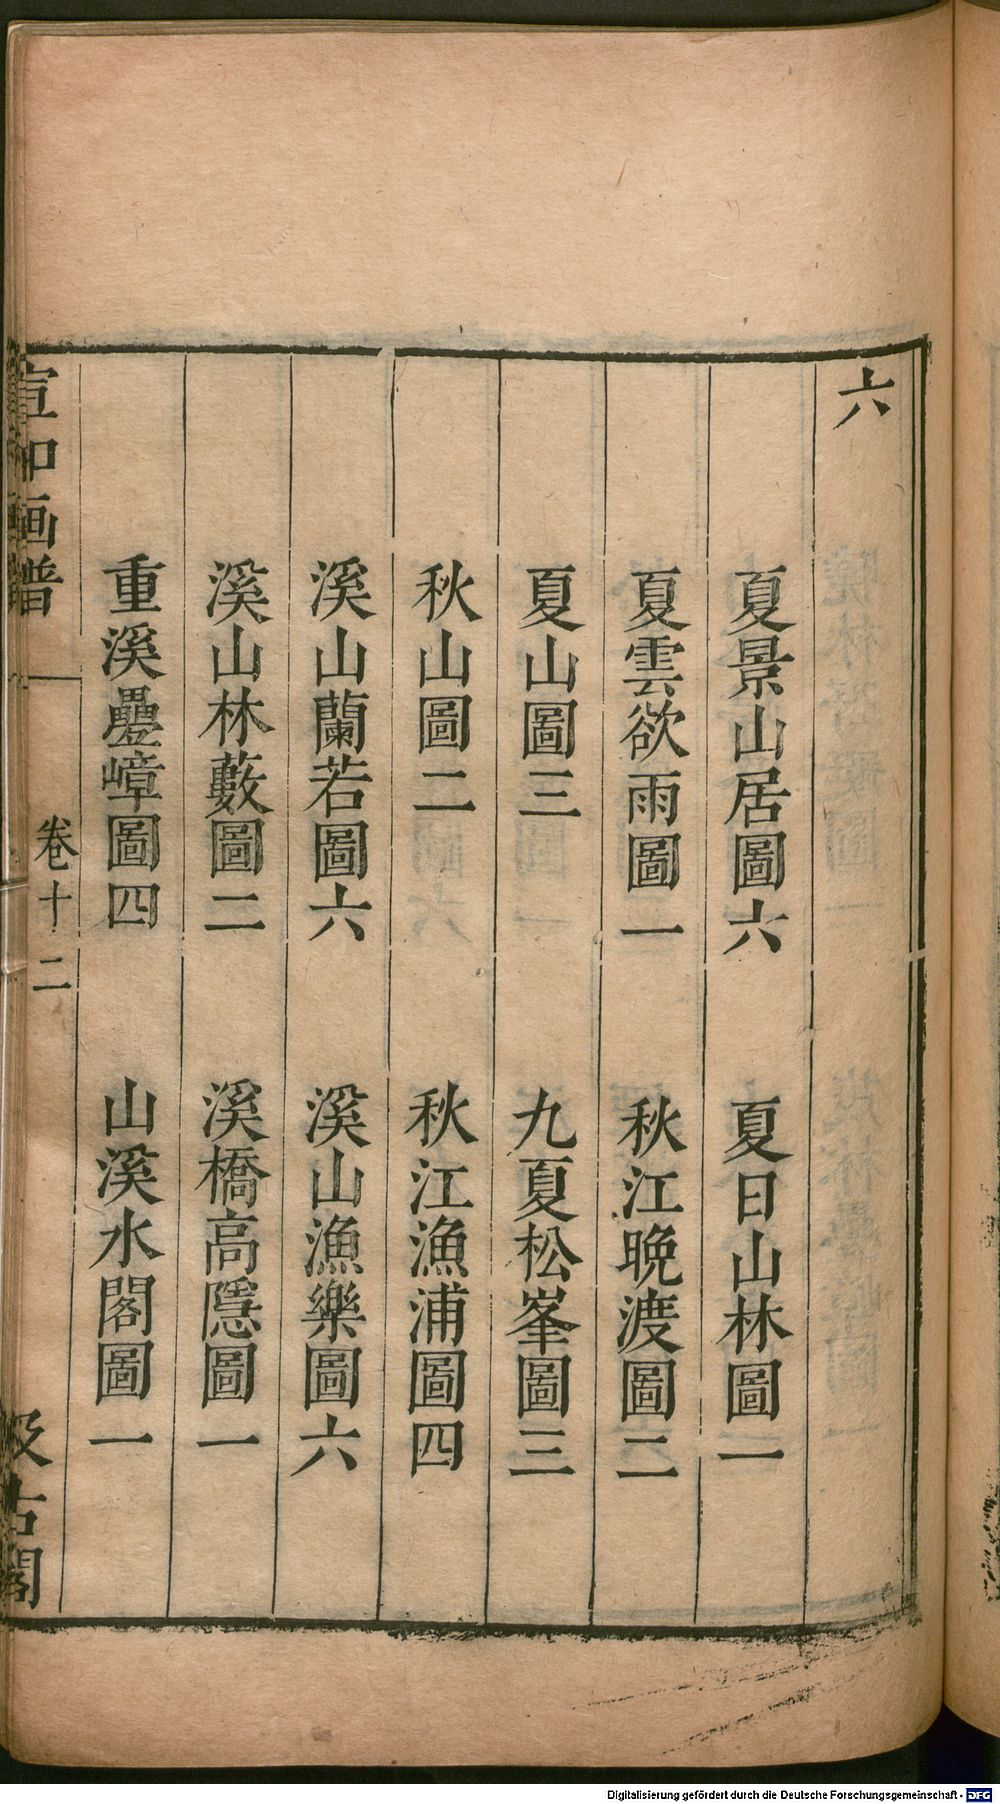 六
夏景山居圖六　夏日山林圖一
夏雲欲雨圖一　秋江晚渡圖二
夏山圖三　九夏松峯圖三
秋山圖二　秋江漁浦圖四
溪山蘭若圖六　溪山漁樂圖六
溪山林藪圖二　溪橋高隱圖一
重溪疊嶂圖四　山溪水閣圖一
宣和画譜　卷十二　汲古閣
Digitalisierung gefördert durch die Deutsche Forschungsgemeinschaft - DFG